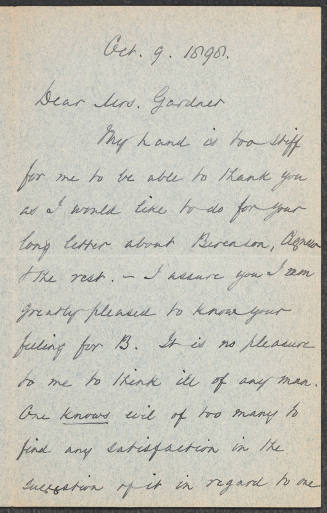 Oct. 9. 1898.
Dear Mrs. Gardner
My hand is too stiff
for me to be able to thank you
as I would like to do for your
long letter about Berenson, Agnew
& the rest. – I assure you I am
greatly pleased to know your
feeling for B. It is no pleasure
to me to think ill of any man.
One knows evil of too many to
find any satisfaction in the
suggestion of it in regard to one